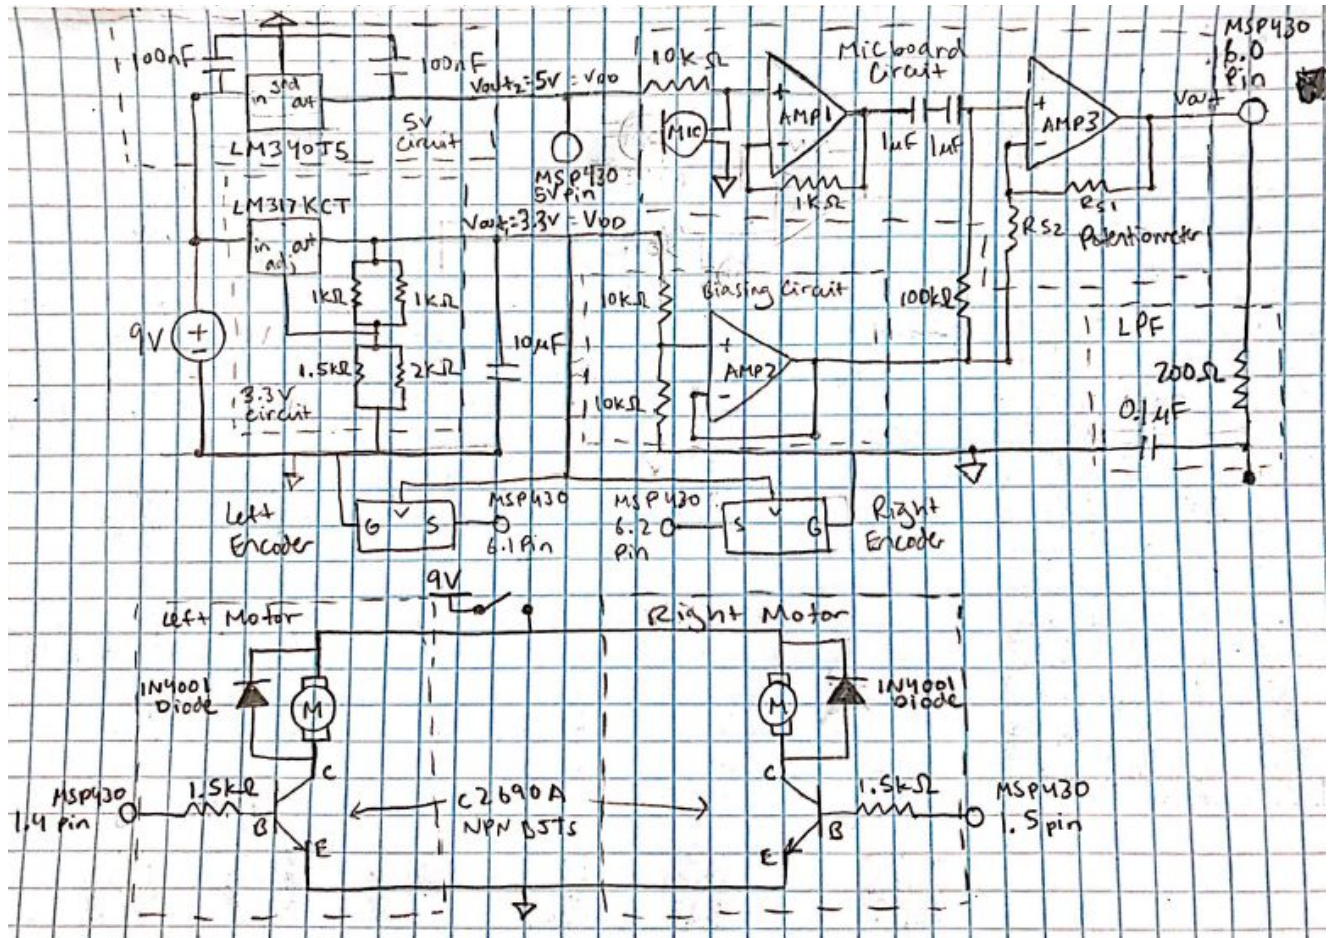 100nF
in gnd out
LM340T5
100nF
5V
Circuit
Vout₂=5V=VDD
MSP430
5V pin
10kΩ
MIC
AMP1
+
-
1kΩ
Micboard
Circuit
1μF 1μF
+
AMP3
-
Vout
MSP430
6.0
Pin
RS1
RS2
Potentiometer
LM317KCT
in out
adj
Vout₁=3.3V=VDD
1kΩ
1kΩ
1.5kΩ
2kΩ
3.3V
Circuit
9V
+
-
10μF
10kΩ
10kΩ
Biasing Circuit
+
AMP2
-
100kΩ
LPF
200Ω
0.1μF
Left
Encoder
G V S
MSP430
6.1 Pin
MSP430
6.2
Pin
S V G
Right
Encoder
9V
Left Motor
Right Motor
1N4001
Diode
M
M
1N4001
Diode
C
C
MSP430
1.4 pin
1.5kΩ
B
E
C2690A
NPN BJTs
E
B
1.5kΩ
MSP430
1.5 pin